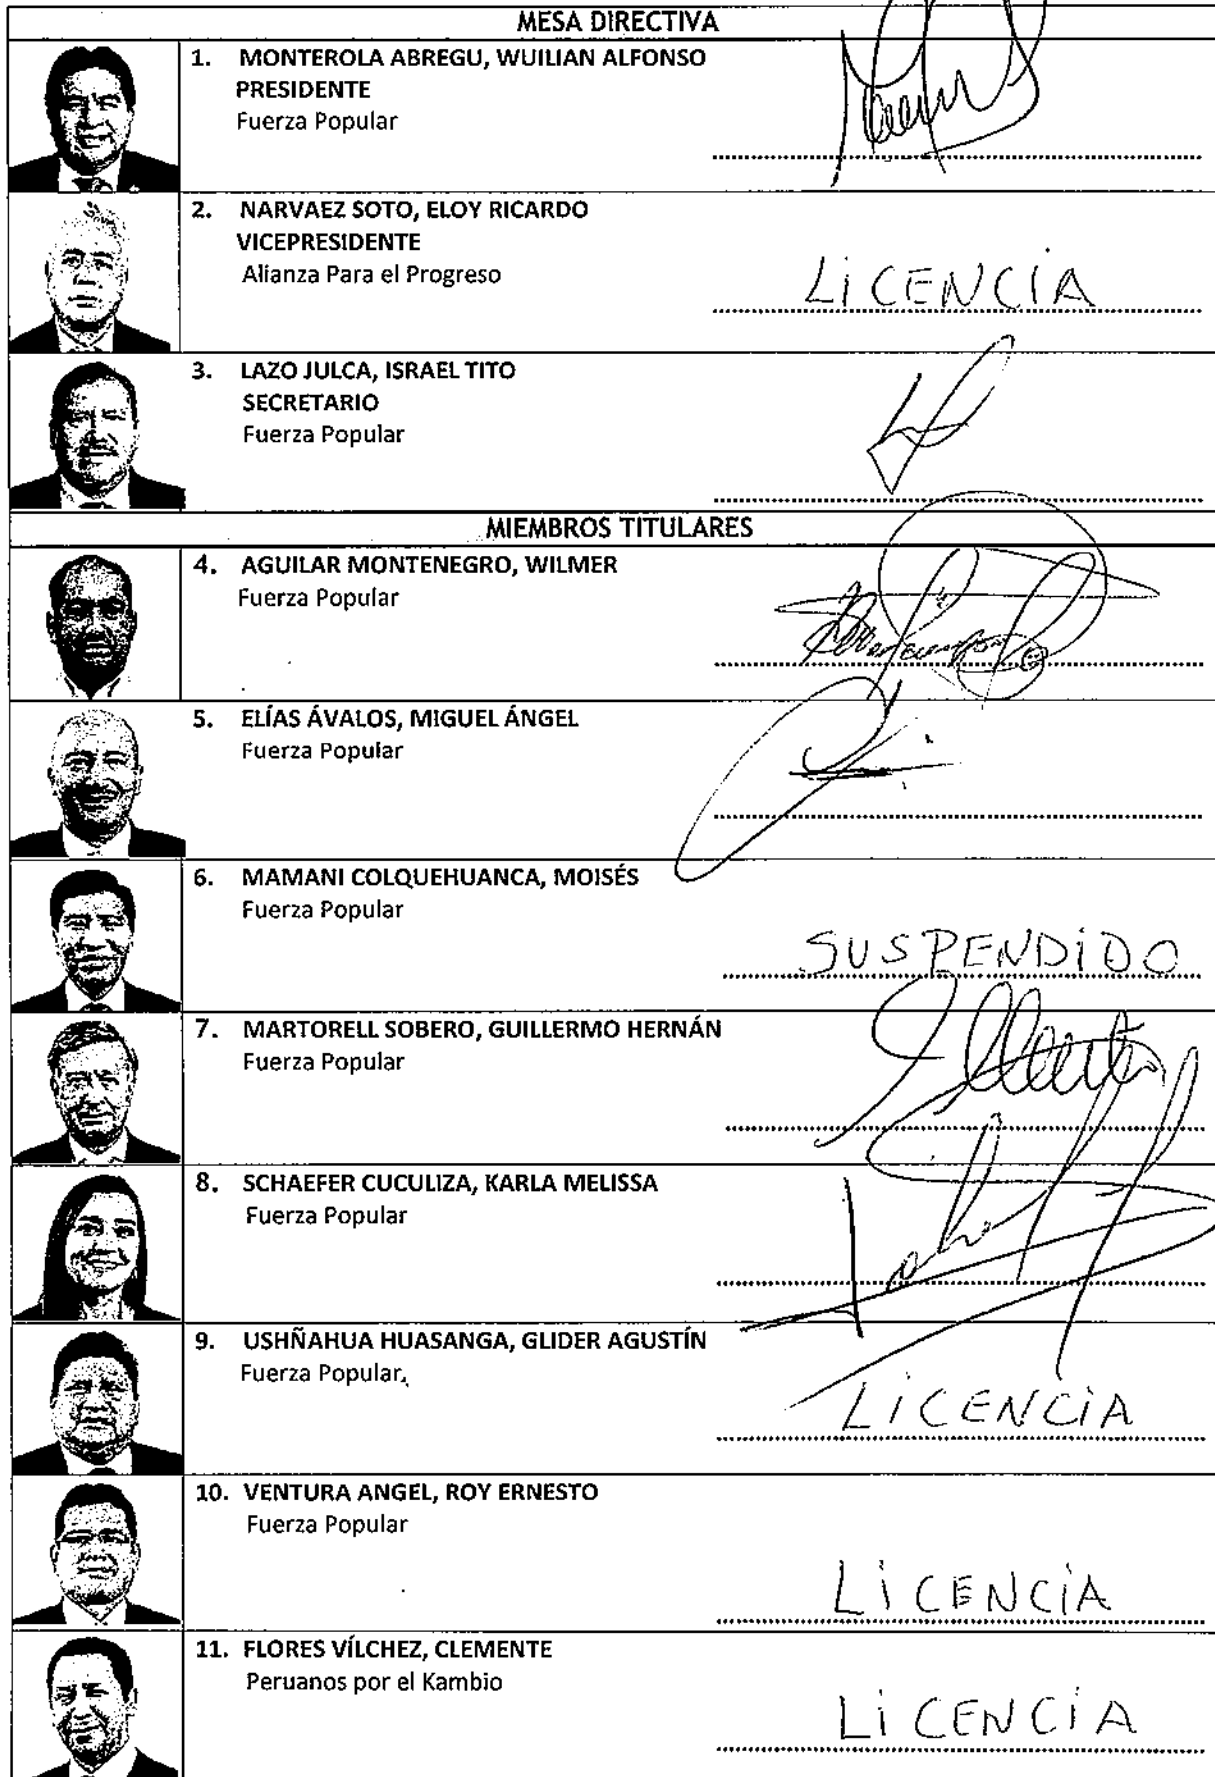 MESA DIRECTIVA
1. MONTEROLA ABREGU, WUILIAN ALFONSO
PRESIDENTE
Fuerza Popular
2. NARVAEZ SOTO, ELOY RICARDO
VICEPRESIDENTE
Alianza Para el Progreso
LICENCIA
3. LAZO JULCA, ISRAEL TITO
SECRETARIO
Fuerza Popular
MIEMBROS TITULARES
4. AGUILAR MONTENEGRO, WILMER
Fuerza Popular
5. ELÍAS ÁVALOS, MIGUEL ÁNGEL
Fuerza Popular
6. MAMANI COLQUEHUANCA, MOISÉS
Fuerza Popular
SUSPENDIDO
7. MARTORELL SOBERO, GUILLERMO HERNÁN
Fuerza Popular
8. SCHAEFER CUCULIZA, KARLA MELISSA
Fuerza Popular
9. USHÑAHUA HUASANGA, GLIDER AGUSTÍN
Fuerza Popular
LICENCIA
10. VENTURA ANGEL, ROY ERNESTO
Fuerza Popular
LICENCIA
11. FLORES VÍLCHEZ, CLEMENTE
Peruanos por el Kambio
LICENCIA